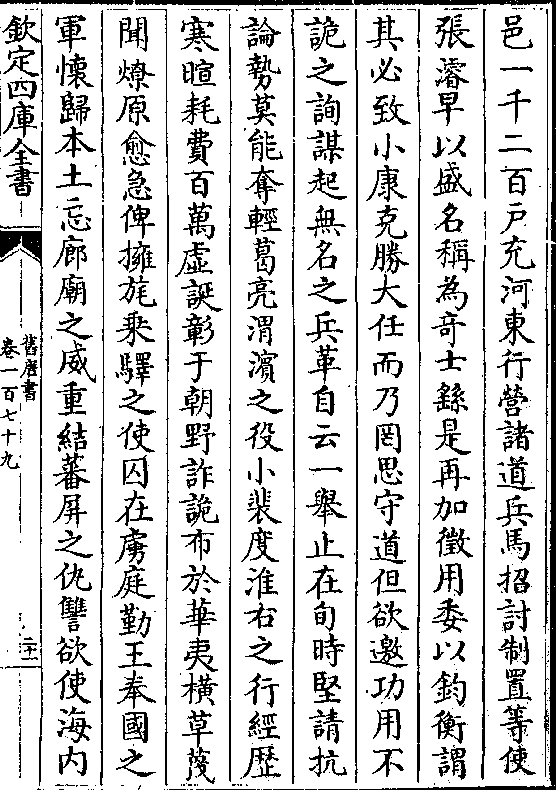 邑一千二百戸充河東行營諸道兵馬招討制置等使
張濬早以盛名稱為奇士繇是再加徵用委以鈞衡謂
其必致小康克勝大任而乃罔思守道但欲邀功用不
詭之詢謀起無名之兵革自云一舉止在旬時堅請抗
論勢莫能奪輕葛亮渭濱之役小裴度淮右之行經歴
寒暄耗費百萬虛誕彰于朝野詐詭布於華夷横草蔑
聞燎原愈急俾擁旄乗驛之使囚在虜庭勤王奉國之
軍懷歸本土忘廊廟之威重結蕃屏之仇讐欲使海内
欽定四庫全書
舊唐書
卷一百七十九
二十一